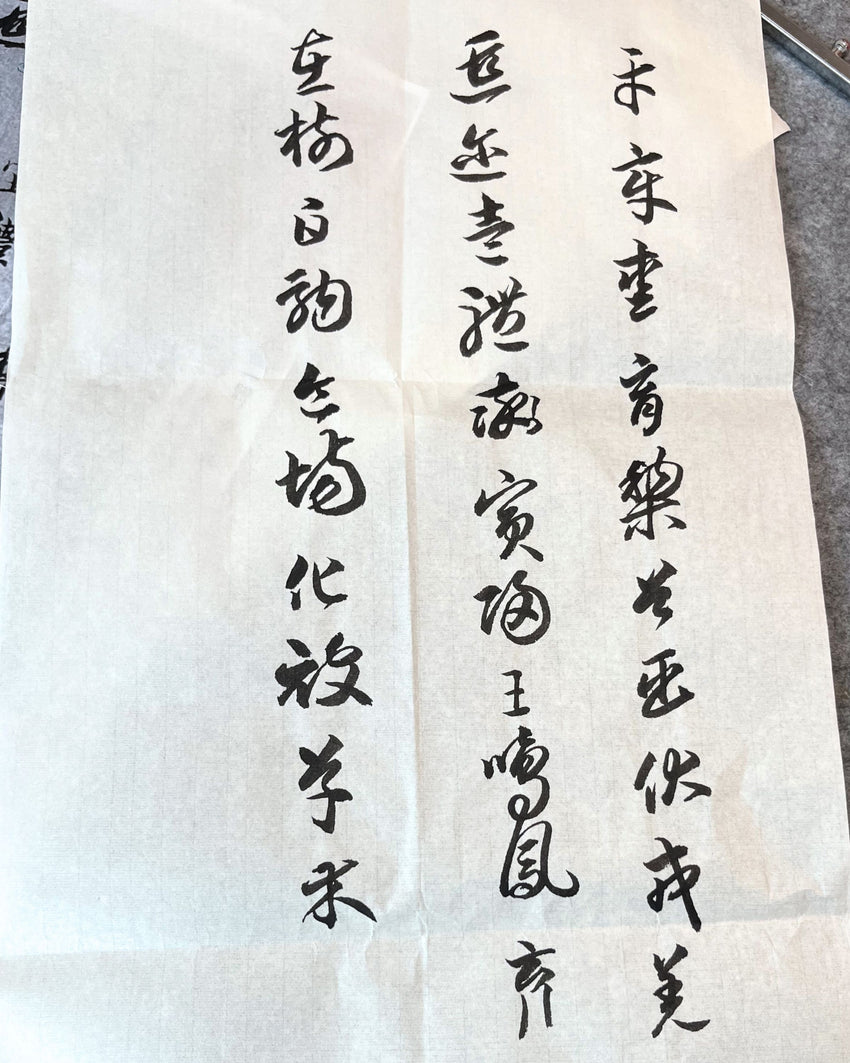 平章愛育黎首臣伏戎羌
遐邇壹體率賓歸王鳴鳳
在樹白駒食場化被草木